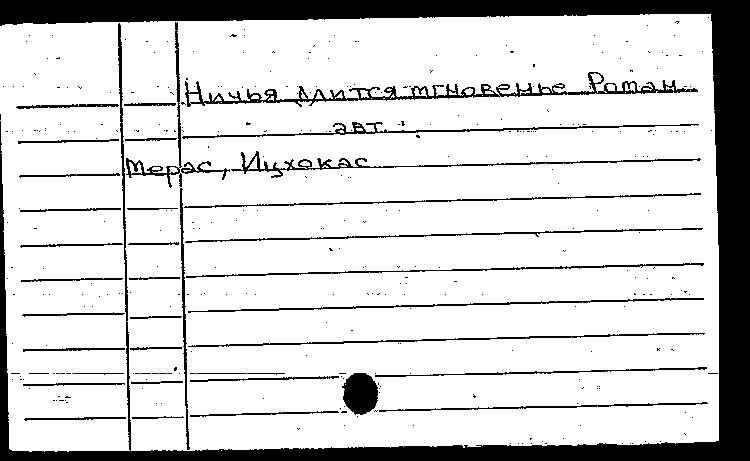 Ничья длится мгновенье Роман
авт. :
Мерас, Ицхокас